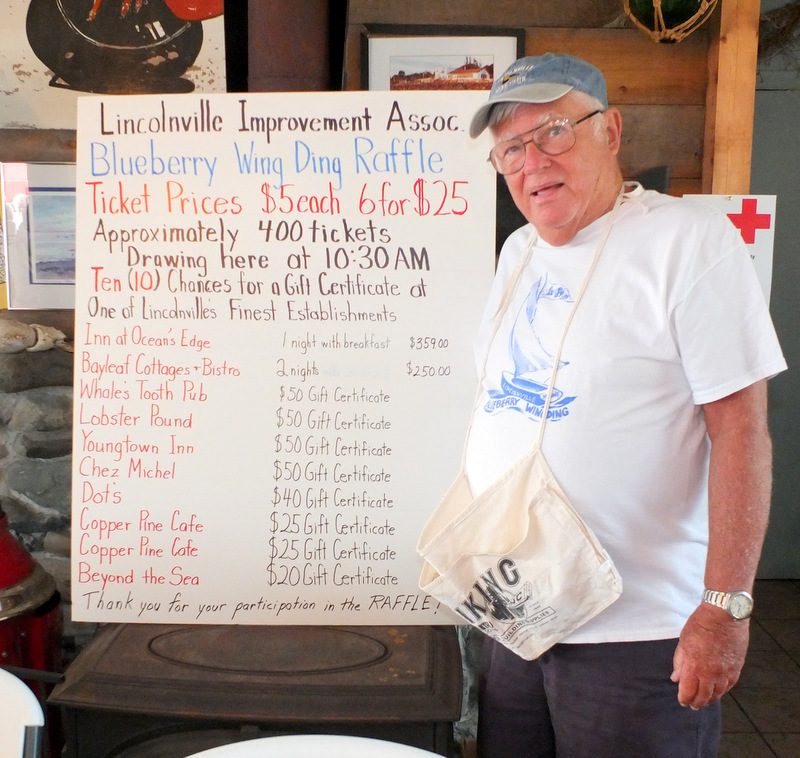 Lincolnville Improvement Assoc.
Blueberry Wing Ding Raffle
Ticket Prices $5 each 6 for $25
Approximately 400 tickets
Drawing here at 10:30 AM
Ten (10) Chances for a Gift Certificate at
One of Lincolnville's Finest Establishments
Inn at Ocean's Edge 1 night with breakfast $359.00
Bayleaf Cottages + Bistro 2 nights $250.00
Whale's Tooth Pub $50 Gift Certificate
Lobster Pound $50 Gift Certificate
Youngtown Inn $50 Gift Certificate
Chez Michel $50 Gift Certificate
Dot's $40 Gift Certificate
Copper Pine Cafe $25 Gift Certificate
Copper Pine Cafe $25 Gift Certificate
Beyond the Sea $20 Gift Certificate
Thank you for your participation in the RAFFLE!
BLUEBERRY WING DING
VIKING
BUILDING SUPPLIES